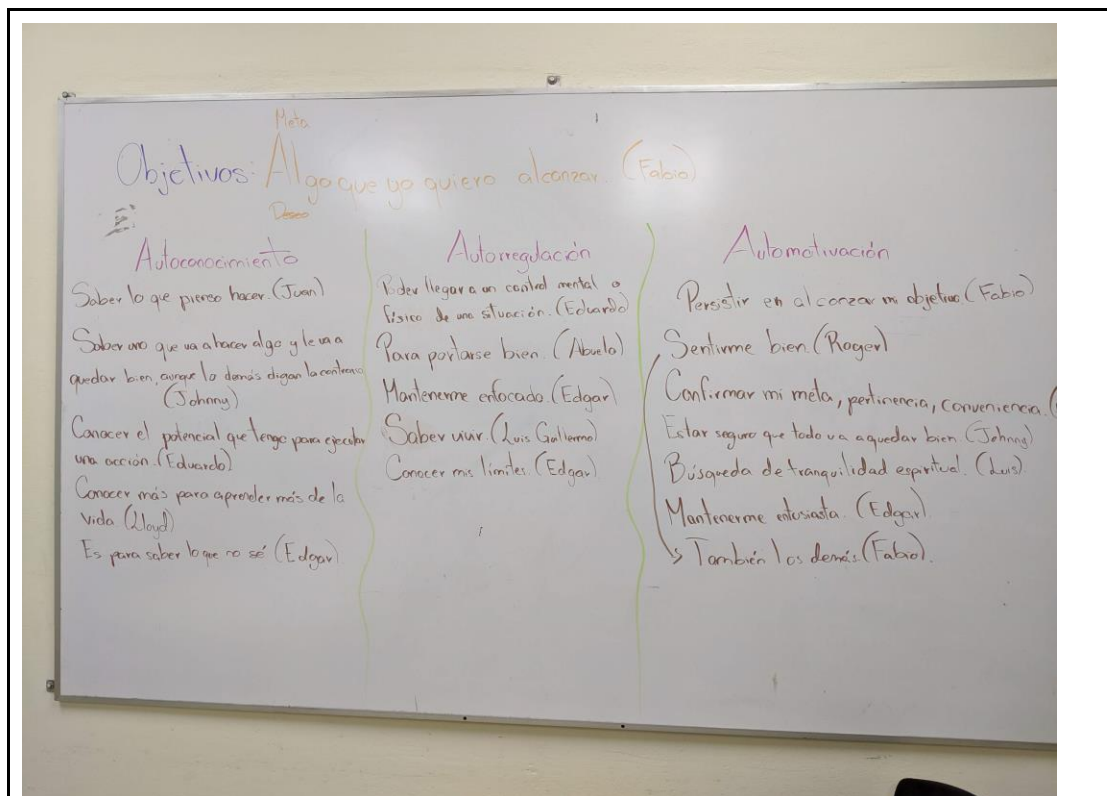 Meta
Objetivos: Algo que yo quiero alcanzar. (Fabio)
Deseo
Autoconocimiento
Saber lo que pienso hacer. (Juan)
Saber uno que va a hacer algo y le va a
quedar bien, aunque lo demás digan lo contrario
(Johnny)
Conocer el potencial que tengo para ejecutar
una acción. (Eduardo)
Conocer más para aprender más de la
vida (Lloyd)
Es para saber lo que no sé (Edgar)
Autorregulación
Poder llegar a un control mental o
físico de una situación. (Eduardo)
Para portarse bien. (Abuelo)
Mantenerme enfocado. (Edgar)
Saber vivir. (Luis Guillermo)
Conocer mis límites. (Edgar)
Automotivación
Persistir en alcanzar mi objetivo (Fabio)
Sentirme bien (Roger)
Confirmar mi meta, pertinencia, conveniencia. (
Estar seguro que todo va a quedar bien. (Johnny)
Búsqueda de tranquilidad espiritual. (Luis)
Mantenerme entusiasta. (Edgar)
También los demás (Fabio).